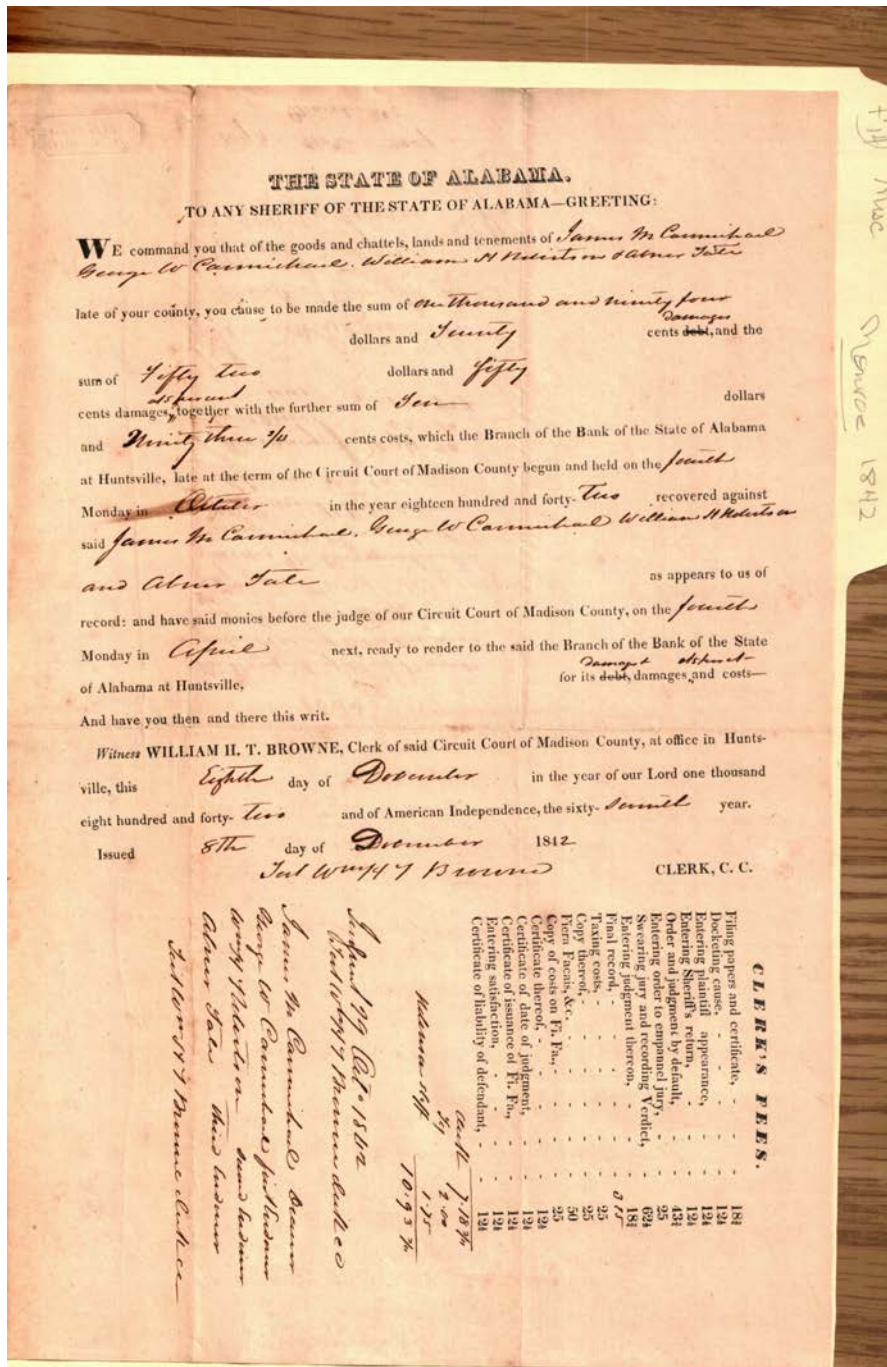 THE STATE OF ALABAMA.
TO ANY SHERIFF OF THE STATE OF ALABAMA—GREETING:
WE command you that of the goods and chattels, lands and tenements of James M Carmichael
George W Carmichael. William H Robertson & Abner Tate
late of your county, you cause to be made the sum of One thousand and ninety four
damages
dollars and Twenty cents debt, and the
sum of Fifty two dollars and fifty
cents damages, together with the further sum of Ten dollars
and Ninety three 3/4 cents costs, which the Branch of the Bank of the State of Alabama
at Huntsville, late at the term of the Circuit Court of Madison County begun and held on the fourth
Monday in October in the year eighteen hundred and forty- two recovered against
said James M Carmichael, George W Carmichael William H Robertson
and Abner Tate as appears to us of
record: and have said monies before the judge of our Circuit Court of Madison County, on the fourth
Monday in April next, ready to render to the said the Branch of the Bank of the State
damages
of Alabama at Huntsville, for its debt, damages and costs—
And have you then and there this writ.
Witness WILLIAM H. T. BROWNE, Clerk of said Circuit Court of Madison County, at office in Hunts-
ville, this Eighth day of December in the year of our Lord one thousand
eight hundred and forty- two and of American Independence, the sixty- seventh year.
Issued 8th day of December 1842
Test Wm H T Browne CLERK, C. C.
CLERK'S FEES.
Filing papers and certificate, - 18¾
Docketing cause, - 12½
Entering plaintiff appearance, 12½
Entering Sheriff's return, - 12½
Order and judgment by default, 43¾
Entering order to empannel jury, 25
Swearing jury and recording Verdict, 62½
Entering judgment thereon, - 18¾
Final record, - 875
Taxing costs, - 25
Copy thereof, - 25
Fiera Facais, &c. - 50
Copy of costs on Fi. Fa., - 25
Certificate thereof, - 12½
Certificate of date of judgment, 12½
Certificate of issuance of Fi. Fa., 12½
Entering satisfaction, - 12½
Certificate of liability of defendant, - 12½
7.18¾
2.00
1.75
10.93¾
Judgt 29 Oct 1842
Test Wm H T Browne clk c c
James M Carmichael Drawer
George W Carmichael first Indorser
Wm H Robertson second Indorser
Abner Tate third Indorser
Test Wm H T Browne clk c c
Misc
Monroe 1842